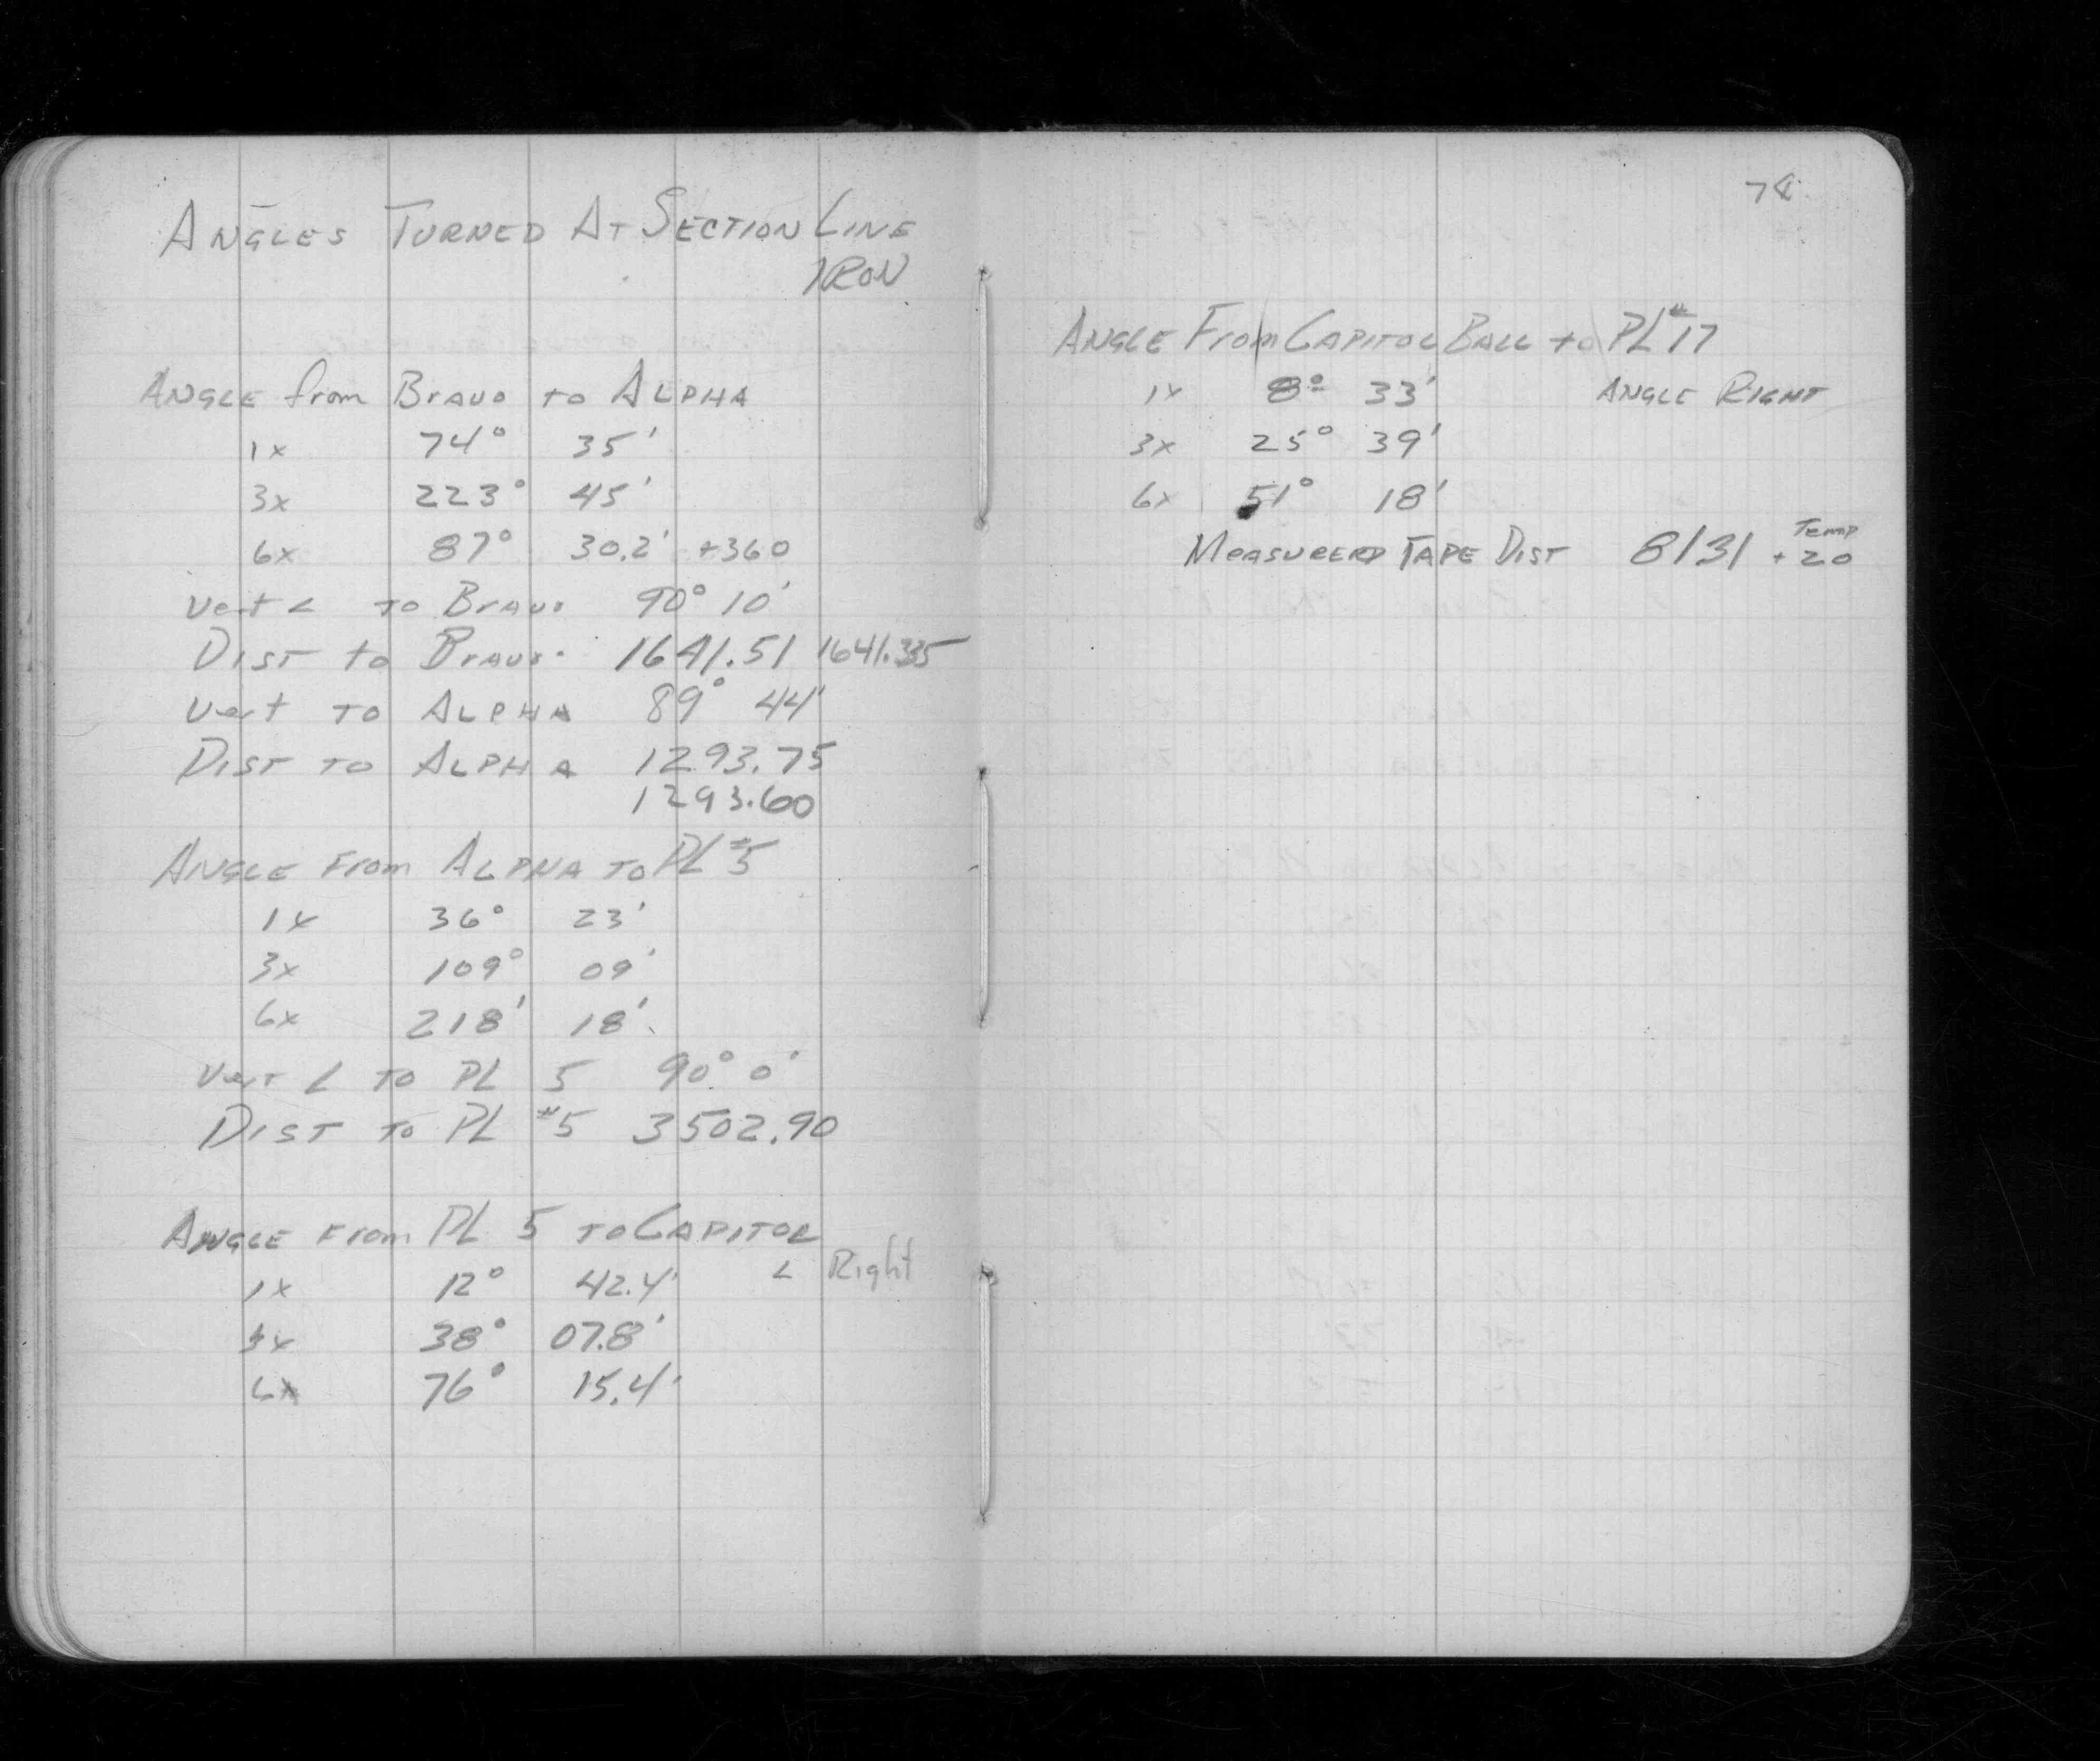 ANGLES TURNED AT SECTION LINE
IRON
ANGLE from BRAVO TO ALPHA
1x 74° 35'
3x 223° 45'
6x 87° 30.2' +360
Vert ∠ TO BRAVO 90° 10'
DIST to BRAVO 1641.51 1641.335
Vert TO ALPHA 89° 44'
DIST TO ALPHA 1293.75
1293.60
ANGLE From ALPHA TO PL #5
1x 36° 23'
3x 109° 09'
6x 218' 18'
Vert ∠ TO PL 5 90° 0'
DIST TO PL #5 3502.90
ANGLE From PL 5 TO CAPITOL
∠ Right
1x 12° 42.4'
3x 38° 07.8'
6x 76° 15.4'
ANGLE From CAPITOL BALL to PL #17
1x 8° 33' ANGLE RIGHT
3x 25° 39'
6x 51° 18'
MEASURERD TAPE DIST 8131 Temp +20